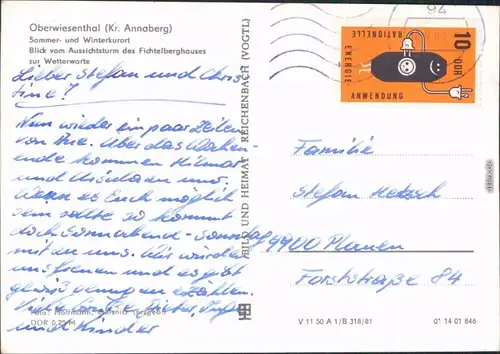 Oberwiesenthal (Kr. Annaberg)
Sommer- und Winterkurort
Blick vom Aussichtsturm des Fichtelberghauses
zur Wetterwarte
Lieber Stefan und Chris
tine!
Nun wieder ein paar Zeilen
von Über das Wochen-
ende kommen Hilmar
und uns.
Wenn es Euch möglich
sein sollte so kommt
doch Sonnabend - Sonntag
mit zu uns. Wir würden
uns freuen und es gibt
gewiß genug zu erzählen.
Viele Grüße Dieter,
und Kinder
Foto: Hoffmann,
DDR
BILD UND HEIMAT REICHENBACH (VOGTL)
94
10 DDR
RATIONELLE
ENERGIE-
ANWENDUNG
Familie
Stefan
9900 Plauen
Forststraße 84
V 11 50 A 1/B 318/81
01 14 01 846